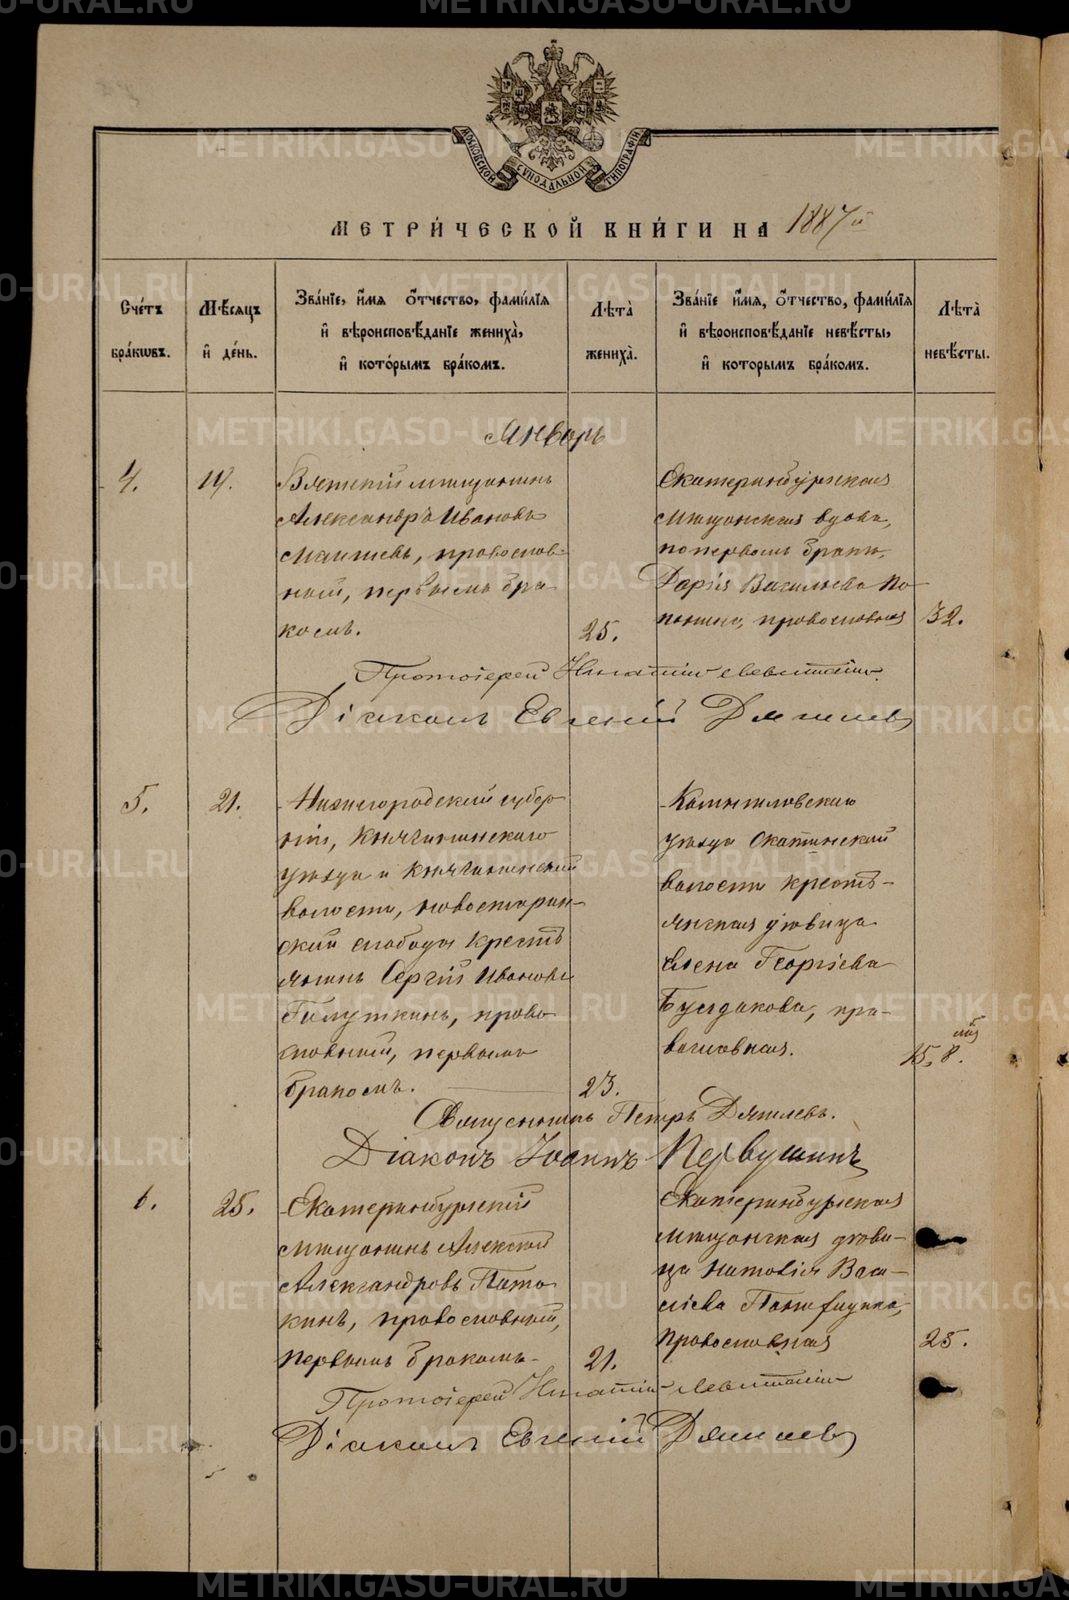 МОСКОВСКОЙ СУНОДАЛЬНОЙ ТИПОГРАФІИ
МЕТРИ́ЧЕСКОЙ КНИ́ГИ НА 1887й
Сче́тъ бра́ковъ.
Мѣ́сяцъ и҆ де́нь.
Зва́нїе, и҆́мя ѻ҆́тчество, фами́лїя и҆ вѣроисповѣ́данїе жениха̀, и҆ кото́рымъ бра́комъ.
Лѣта̀ жениха̀.
Зва́нїе и҆́мя, ѻ҆́тчество, фами́лїя и҆ вѣроисповѣ́данїе невѣ́сты, и҆ которымъ бра́комъ.
Лѣта̀ невѣ́сты.
Январь
4.
19.
Вятскій мѣщанинъ
Александръ Ивановъ
православ-
ный, первымъ бра
комъ.
25.
Екатеринбургская
мѣщанская вдова,
по первомъ бракѣ,
Дарія Васильева По
православная
32.
Протоіерей Игнатій Левитскій.
Діаконъ Евгеній Дягилевъ
5.
21.
Нижегородской губер
ніи, Княгининскаго
уѣзда и Княгининской
волости,
слободы крестъ
янинъ Сергій Ивановъ
право
славный, первымъ
бракомъ.
23.
Камышловскаго
уѣзда Скатинской
волости крестъ-
янская дѣвица
Елена Георгіева
Бурдакова, пра-
вославная.
15, 8. мѣс
Священникъ Петръ Дягилевъ.
Діаконъ Іоаннъ Первушинъ
6.
25.
Екатеринбургскій
мѣщанинъ Алексѣй
Александровъ Пато
кинъ, православный,
первымъ бракомъ.
21.
Екатеринбургская
мѣщанская дѣви-
ца Наталія Васи-
льева
православная
25.
Протоіерей Игнатій Левитскій
Діаконъ Евгеній Дягилевъ
METRIKI.GASO-URAL.RU